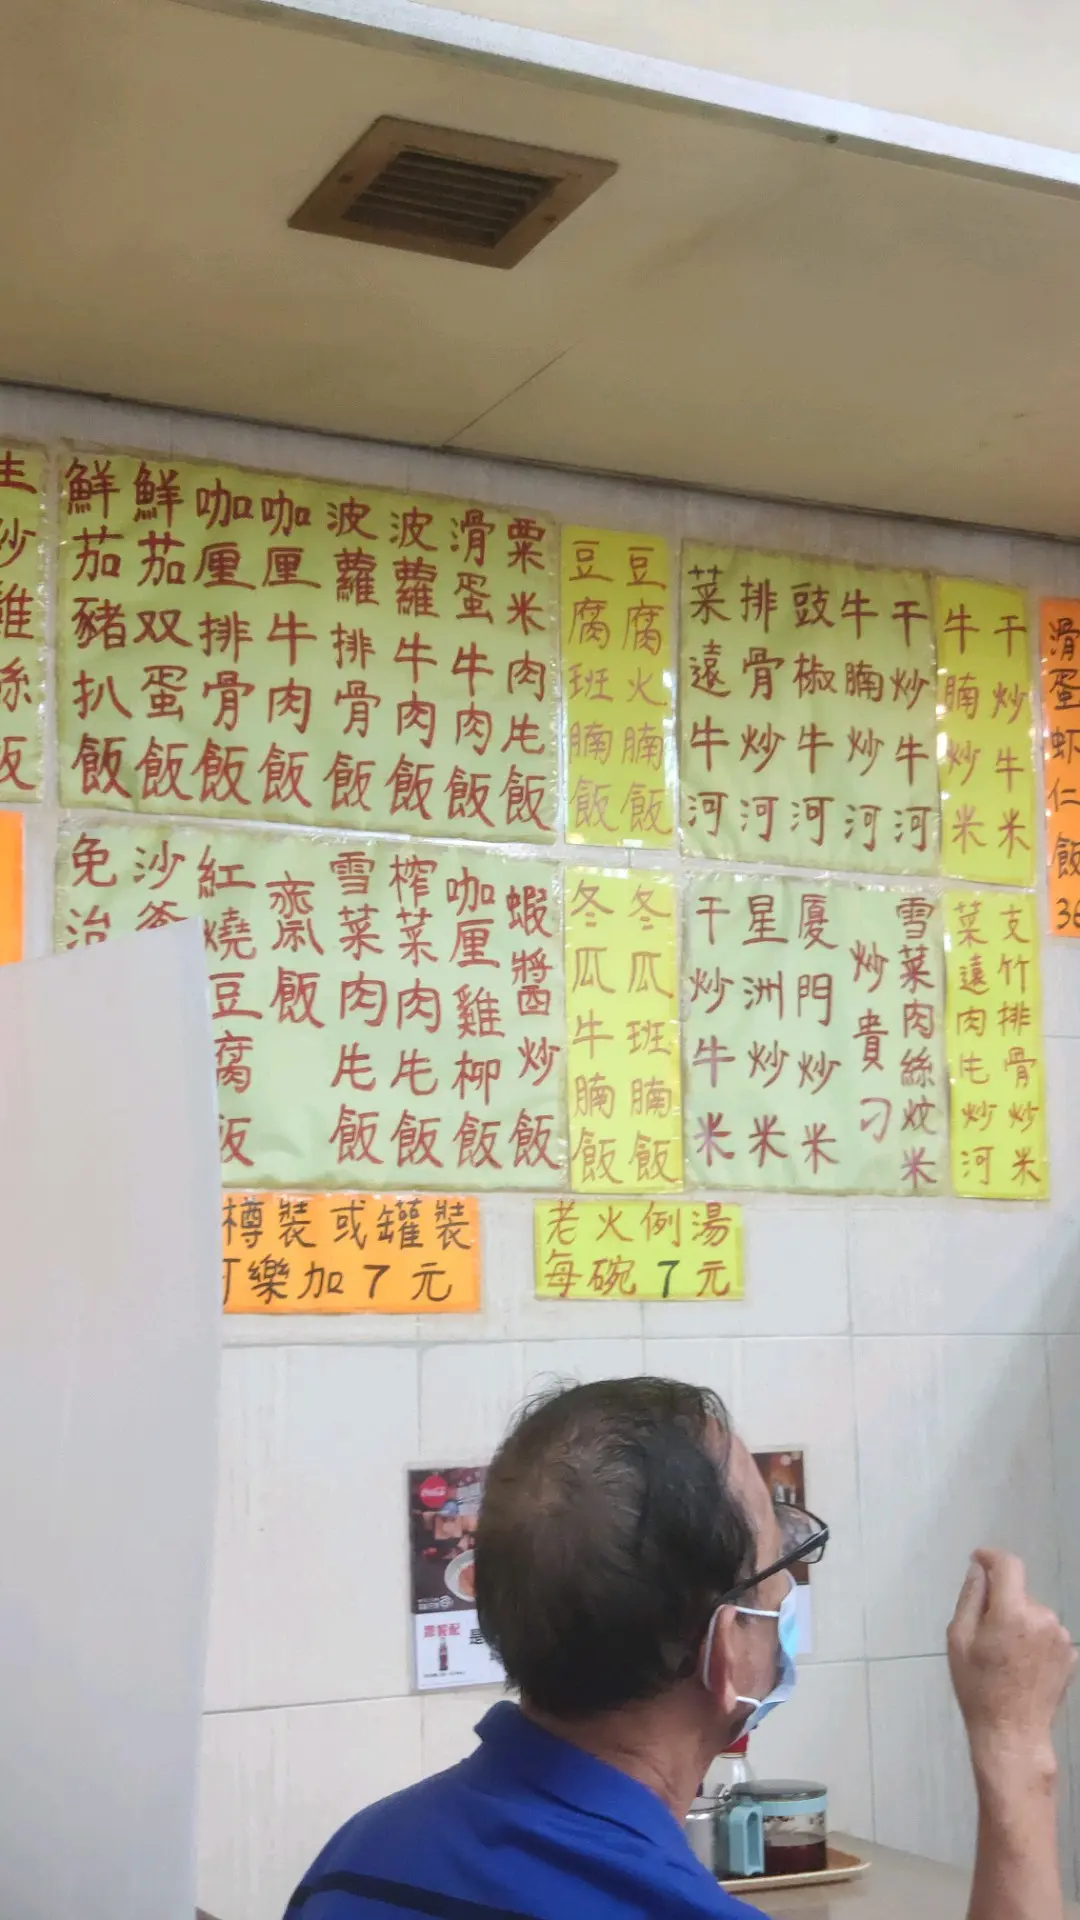 鮮茄豬扒飯
鮮茄双蛋飯
咖厘排骨飯
咖厘牛肉飯
波蘿排骨飯
波蘿牛肉飯
滑蛋牛肉飯
粟米肉乇飯
豆腐班腩飯
豆腐火腩飯
菜遠牛河
排骨炒河
豉椒牛河
牛腩炒河
干炒牛河
牛腩炒米
干炒牛米
滑蛋虾仁飯
36
免治
沙爹
紅燒豆腐飯
齋飯
雪菜肉乇飯
榨菜肉乇飯
咖厘雞柳飯
蝦醬炒飯
冬瓜牛腩飯
冬瓜班腩飯
干炒牛米
星洲炒米
厦門炒米
炒貴刁
雪菜肉絲炆米
菜遠肉乇炒河
支竹排骨炒米
樽裝或罐裝
可樂加7元
老火例湯
每碗7元